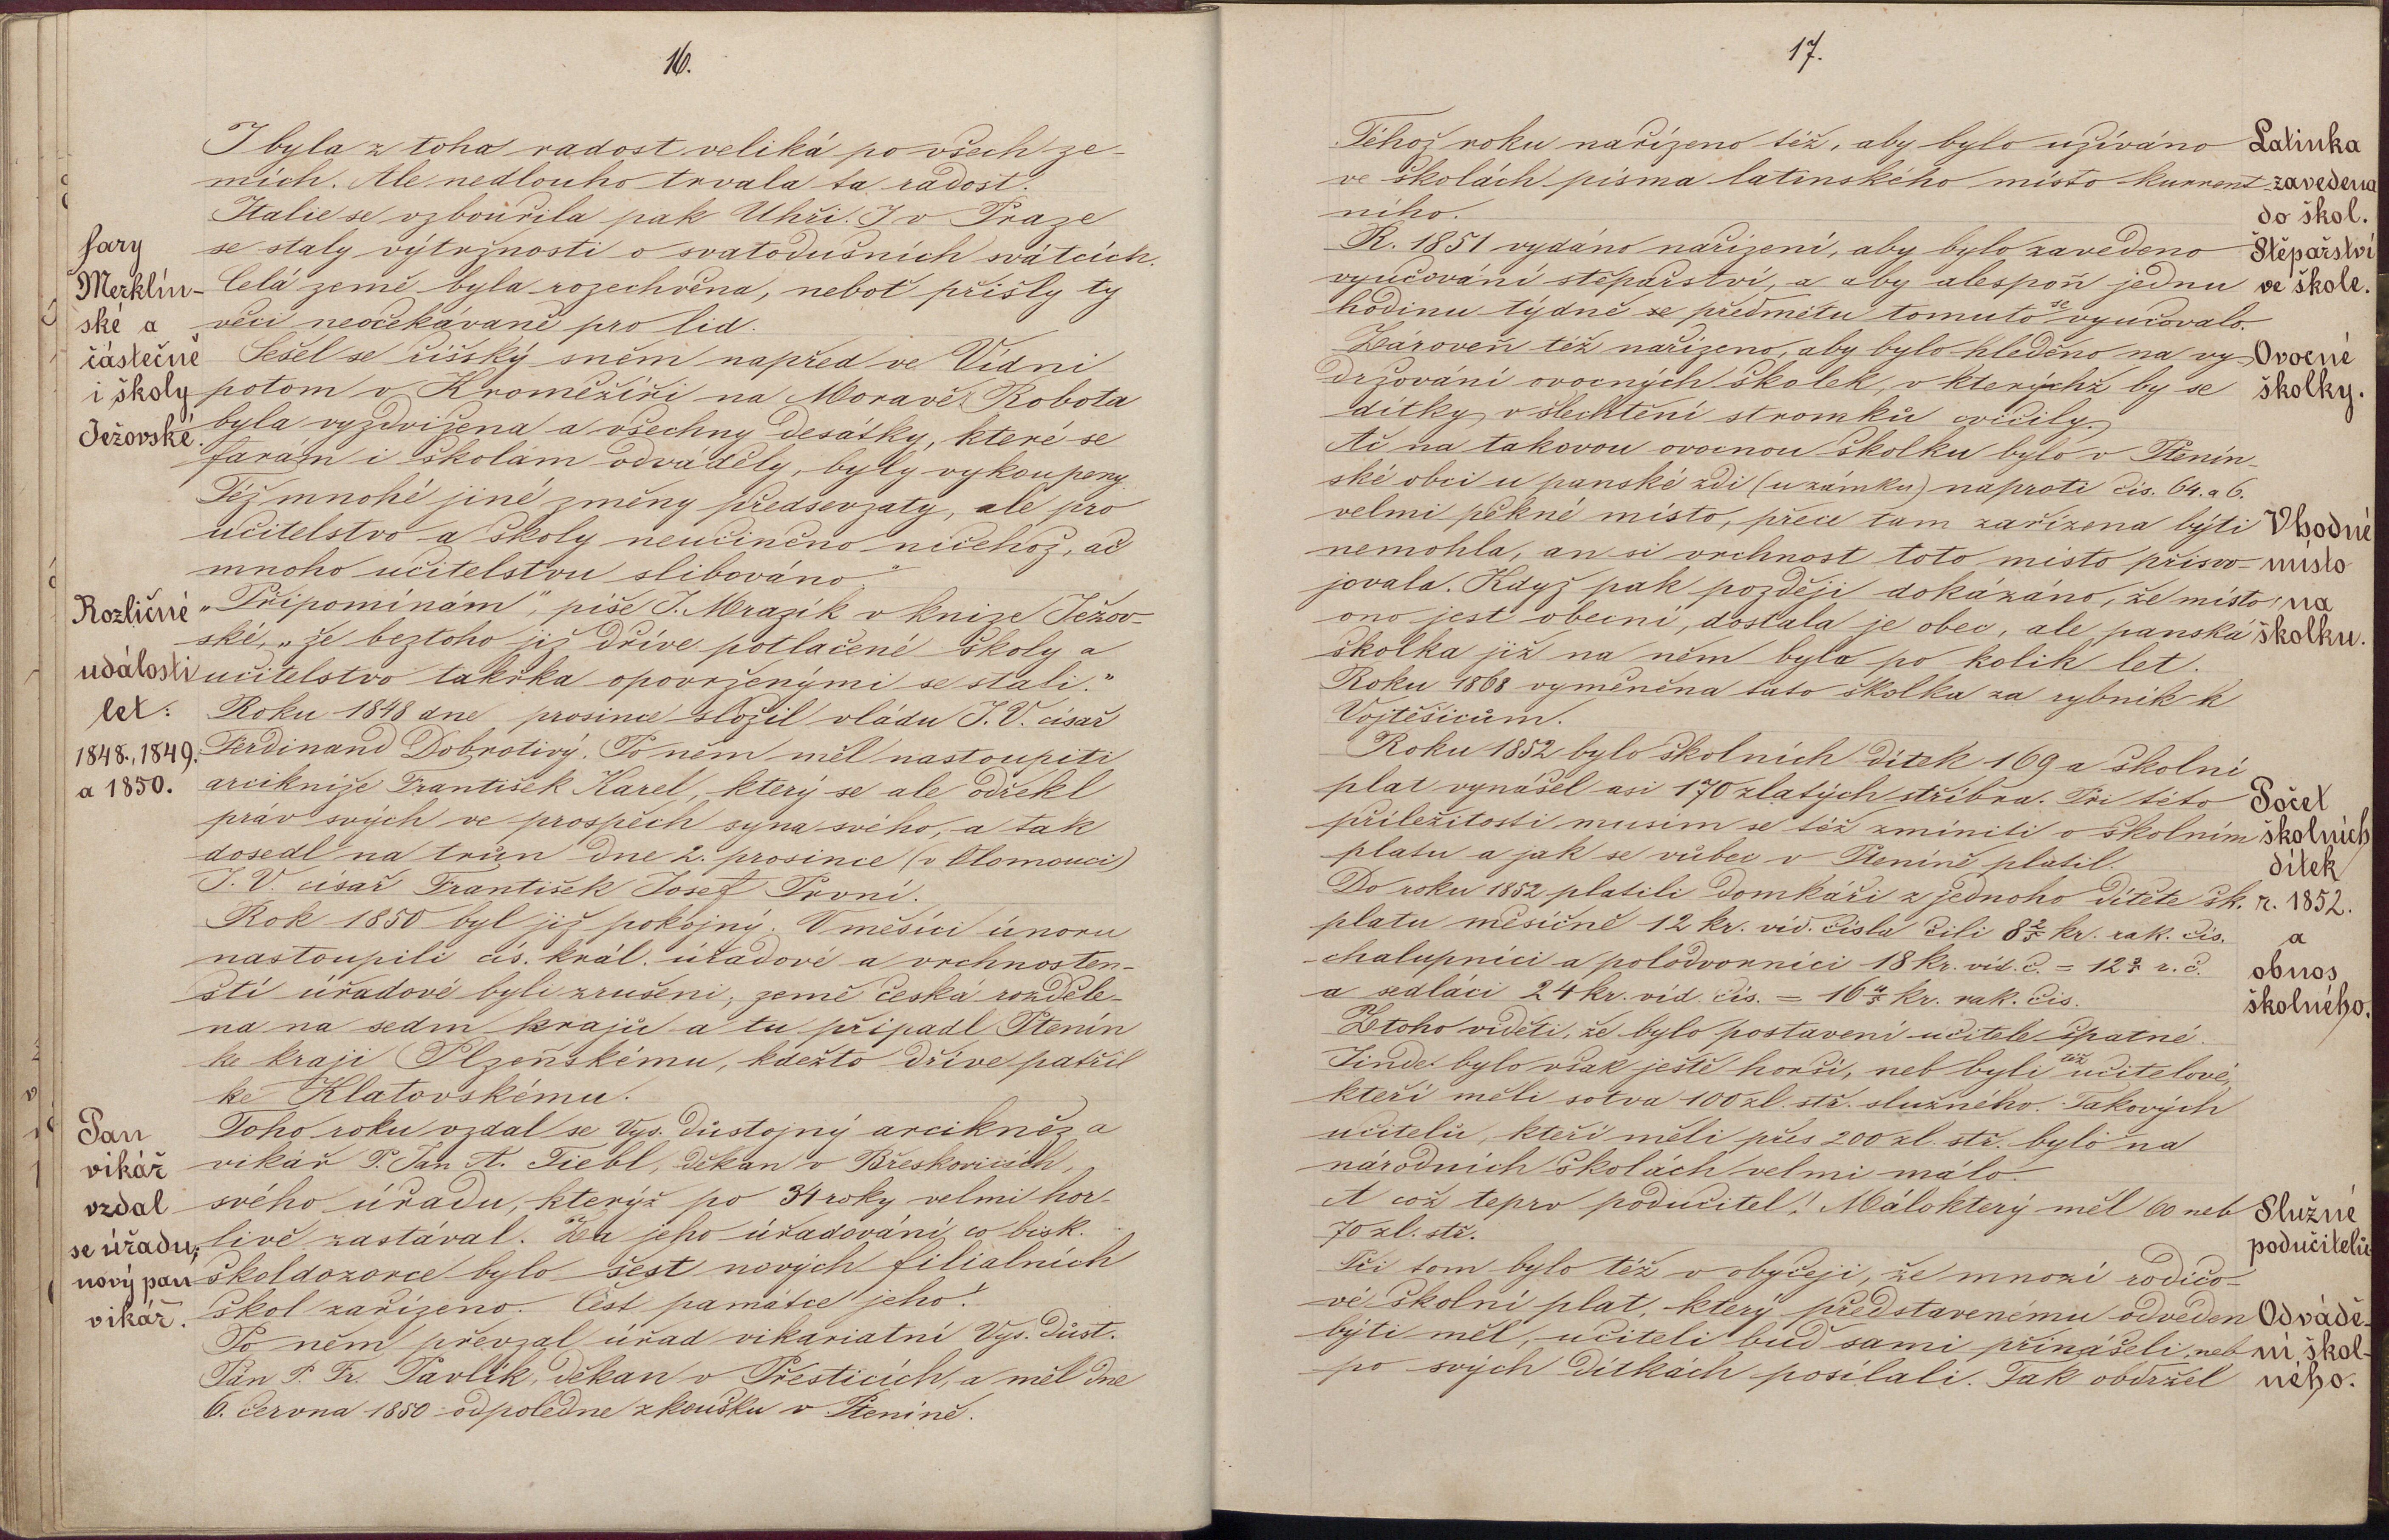 16.
I byla z toho radost veliká po všech ze-
mích. Ale nedlouho trvala ta radost.
Italie se vzbouřila pak Uhři. I v Praze
se staly výtržnosti o svatodušních svátcích.
Celá země byla rozechvěna, neboť přišly ty
věci neočekávaně pro lid.
Sešel se říšský sněm napřed ve Vídni
potom v Kroměžíři na Moravě. Robota
byla vyzdvižena a všechny desátky, které se
farám i školám odváděly, byly vykoupeny.
Též mnohé jiné změny předsevzaty, ale pro
učitelstvo a školy neučiněno ničehož, ač
mnoho učitelstvu slibováno.
„Připomínám", píše J. Mrazík v knize Ježov-
ské, „že beztoho již dříve potlačené školy a
učitelstvo takřka opovrženými se stali."
Roku 1848 dne prosince složil vládu J. V. císař
Ferdinand Dobrotivý. Po něm měl nastoupiti
arcikníže František Karel, který se ale odřekl
práv svých ve prospěch syna svého, a tak
dosedl na trůn dne 2. prosince (v Olomouci)
J. V. císař František Josef První.
Rok 1850 byl již pokojný. V měsíci únoru
nastoupili cís. král. úřadové a vrchnosten-
ští úřadové byli zrušeni, země česká rozděle-
na na sedm krajů a tu připadl Ptenín
ke kraji Plzeňskému, kdežto dříve patřil
ke Klatovskému.
Toho roku vzdal se Vys. důstojný arcikněz a
vikář P. Jan A. Tiebl, děkan v Břeskovicích,
svého úřadu, kterýž po 34 roky velmi hor-
livě zastával. Za jeho úřadování co bisk.
školdozorce bylo šest nových filialních
škol zařízeno. Čest památce jeho!
Po něm převzal úřad vikariatní Vys. důst.
Pán P. Fr. Pavlík, děkan v Přesticích, a měl dne
6. června 1850 odpoledne zkoušku v Pteníně.
fary
Merklín-
ské a
částečně
i školy
Ježovské.
Rozličné
události
let:
1848., 1849.
a 1850.
Pan
vikář
vzdal
se úřadu,
nový pan
vikář.
17.
Téhož roku nařízeno též, aby bylo užíváno
ve školách písma latinského místo kurrent-
ního.
R. 1851 vydáno nařízení, aby bylo zavedeno
vyučování štěpařství, a aby alespoň jednu
hodinu týdně se předmětu tomuto se vyučovalo.
Zároveň též nařízeno, aby bylo hleděno na vy-
držování ovocných školek, v kterýchž by se
dítky v šlechtění stromků cvičily.
Ač na takovou ovocnou školku bylo v Ptenín-
ské obci u panské zdi (u zámku) naproti čís. 64. a 6.
velmi pěkné místo, přece tam zařízena býti
nemohla, an si vrchnost toto místo přisvo-
jovala. Když pak později dokázáno, že místo
ono jest obecní, dostala je obec, ale panská
školka již na něm byla po kolik let.
Roku 1868 vyměněna tato školka za rybník k
Vojtěšicům.
Roku 1852 bylo školních dítek 169 a školní
plat vynášel asi 170 zlatých stříbra. Při této
příležitosti musím se též zmíniti o školním
platu a jak se vůbec v Pteníně platil.
Do roku 1852 platili domkáři z jednoho dítěte šk.
platu měsíčně 12 kr. víd. čísla čili 8 2/5 kr. rak. čís.
chalupníci a polodvorníci 18 kr. víd. č. = 12 3/5 r. č.
a sedláci 24 kr. víd. čís. = 16 4/5 kr. rak. čís.
Z toho viděti, že bylo postavení učitele špatné.
Jinde bylo však ještě horší, neb byli též učitelové,
kteří měli sotva 100 zl. stř. služného. Takových
učitelů, kteří měli přes 200 zl. stř. bylo na
národních školách velmi málo.
A což teprv podučitel! Málokterý měl 60 neb
70 zl. stř.
Při tom bylo též v obyčeji, že mnozí rodičo-
vé školní plat, který představenému odveden
býti měl, učiteli buď sami přinášeli, neb
po svých dítkách posílali. Tak obdržel
Latinka
zavedena
do škol.
Štěpařství
ve škole.
Ovocné
školky.
Vhodné
místo
na
školku.
Počet
školních
dítek
r. 1852.
a
obnos
školného.
Služné
podučitelů
Odvádě-
ní škol-
ného.